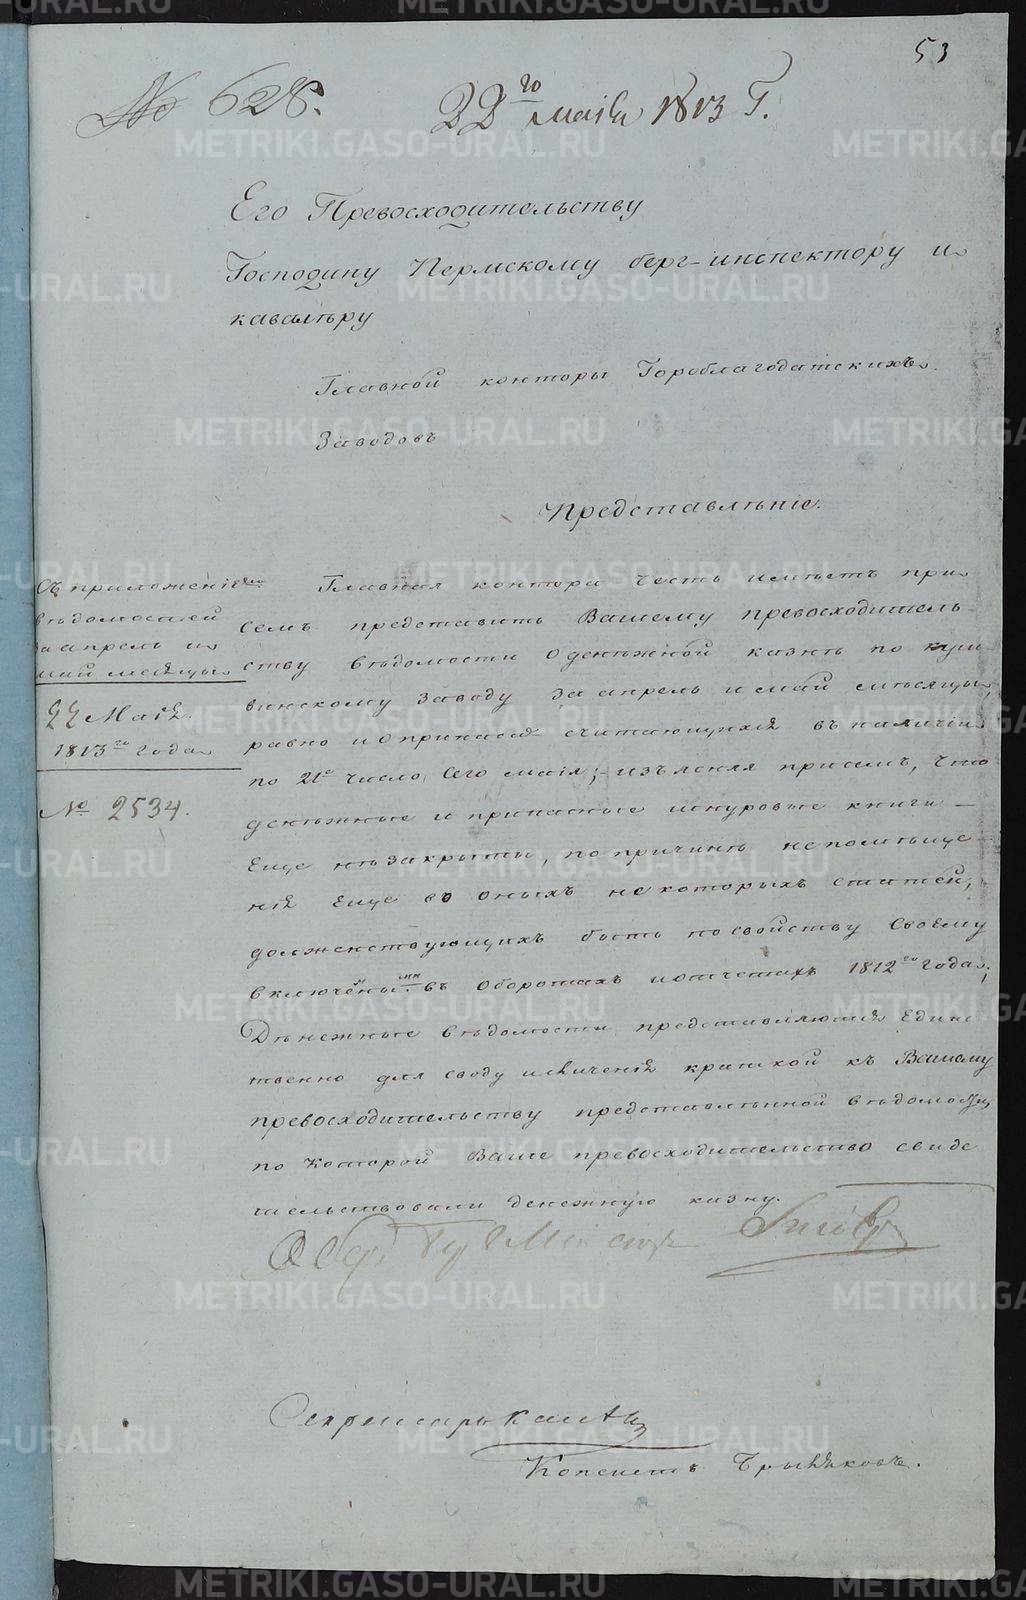 53
№ 628. 22го маія 1813 Г.
Его Превосходительству
Господину Пермскому берг-инспектору и
кавалѣру
Главной конторы Гороблагодатскихъ
Заводовъ
Представлѣніе.
Съ приложеніемъ
вѣдомостей
за апрель и
май месяцы
22 Маія
1813го года
№ 2534.
Главная контора честь имѣетъ при
семъ представить Вашему превосходитель-
ству вѣдомости о денѣжной казнѣ по куш-
винскому заводу за апрель и май мѣсяцы,
равно и о припасах считающихся въ наличіи
по 21е число сего маія; изъясняя присемъ, что
денѣжные и припасные шнуровые книги
еще нѣзакрыты, по причинѣ непомѣще-
нія еще во оныхъ некоторыхъ статей,
долженствующихъ быть посвойству своему
включеными въ оборотах иотчетахъ 1812го года;
Дѣнежные вѣдомости представляются единс
твенно для своду иличенія краткой къ Вашему
превосходительству представлѣнной вѣдомости,
по которой Ваше превосходительство свиде
тельствовали денежную казну.
Секретарь
Копеистъ
METRIKI.GASO-URAL.RU